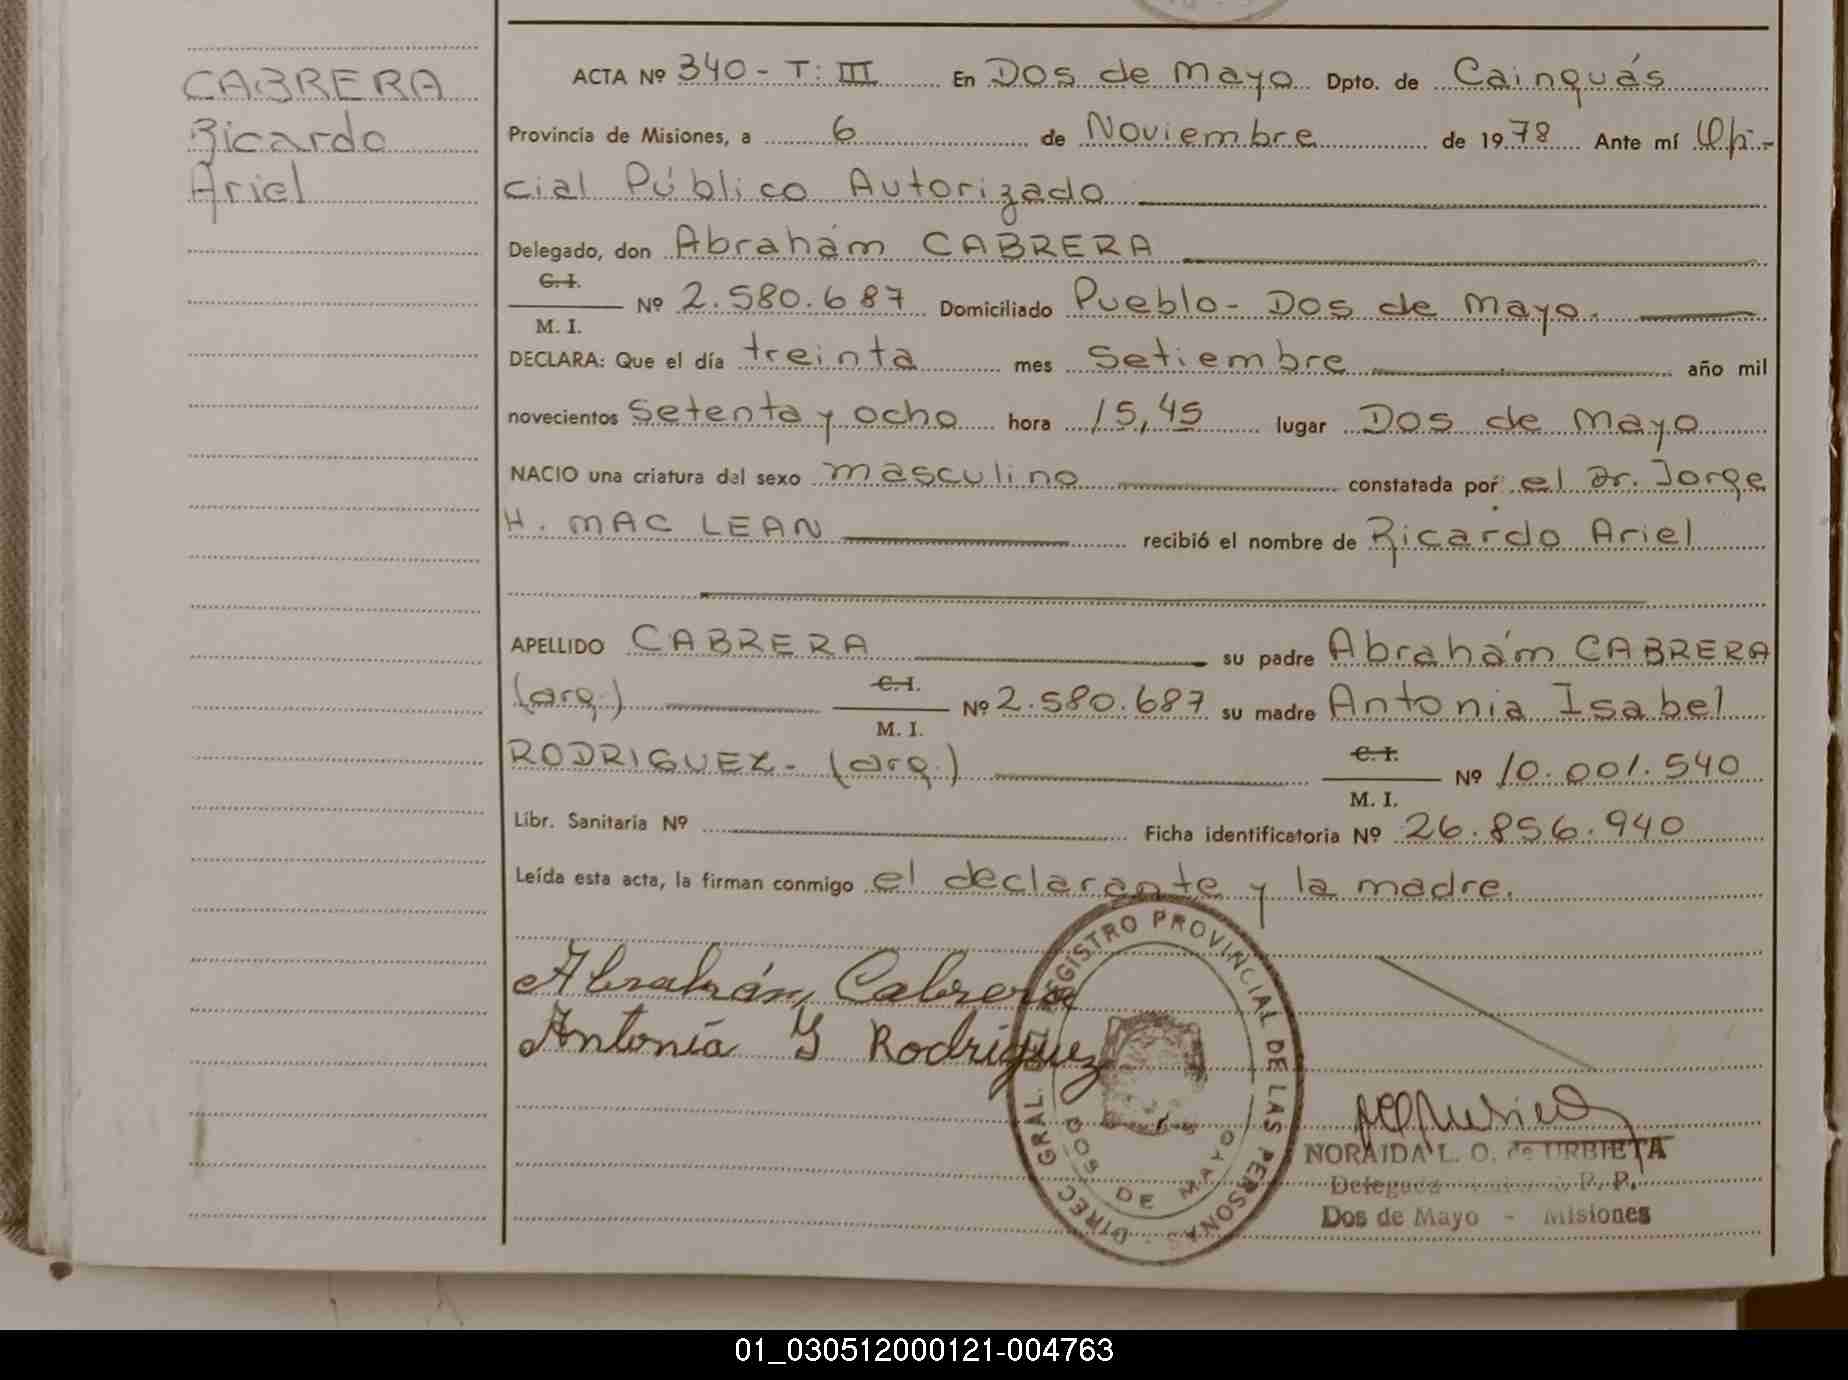 CABRERA
Ricardo
Ariel
ACTA Nº 340 - T: III En Dos de Mayo Dpto. de Cainguás
Provincia de Misiones, a 6 de Noviembre de 1978 Ante mí Ofi-
cial Público Autorizado
Delegado, don Abrahám CABRERA
C. I.
M. I. Nº 2.580.687 Domiciliado Pueblo - Dos de Mayo.
DECLARA: Que el día treinta mes Setiembre año mil
novecientos Setenta y ocho hora 15,45 lugar Dos de Mayo
NACIO una criatura del sexo masculino constatada por el Dr. Jorge
H. MAC LEAN recibió el nombre de Ricardo Ariel
APELLIDO CABRERA su padre Abrahám CABRERA
(arg.) C. I.
M. I. Nº 2.580.687 su madre Antonia Isabel
RODRIGUEZ - (arg.) C. I.
M. I. Nº 10.001.540
Libr. Sanitaria Nº Ficha identificatoria Nº 26.856.940
Leída esta acta, la firman conmigo el declarante y la madre.
Abrahán Cabrera
Antonia Y Rodríguez
DIREC GRAL. DEL REGISTRO PROVINCIAL DE LAS PERSONAS
DOS DE MAYO
NORAIDA L. O. de URBIETA
Delegada P. P.
Dos de Mayo - Misiones
01_030512000121-004763